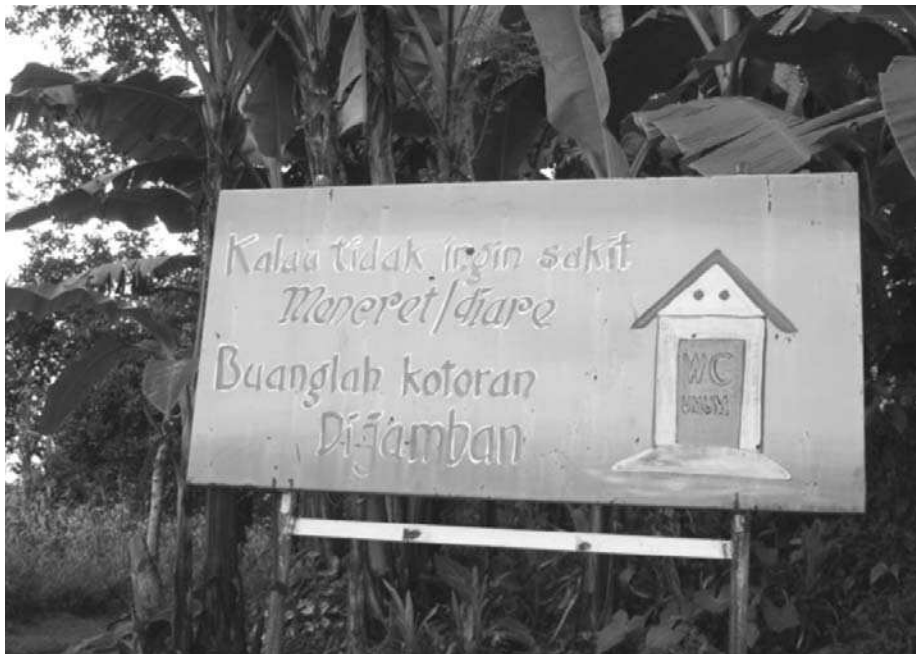 Kalau tidak ingin sakit
Menceret/diare
Buanglah kotoran
Di-jamban
WC
UMUM